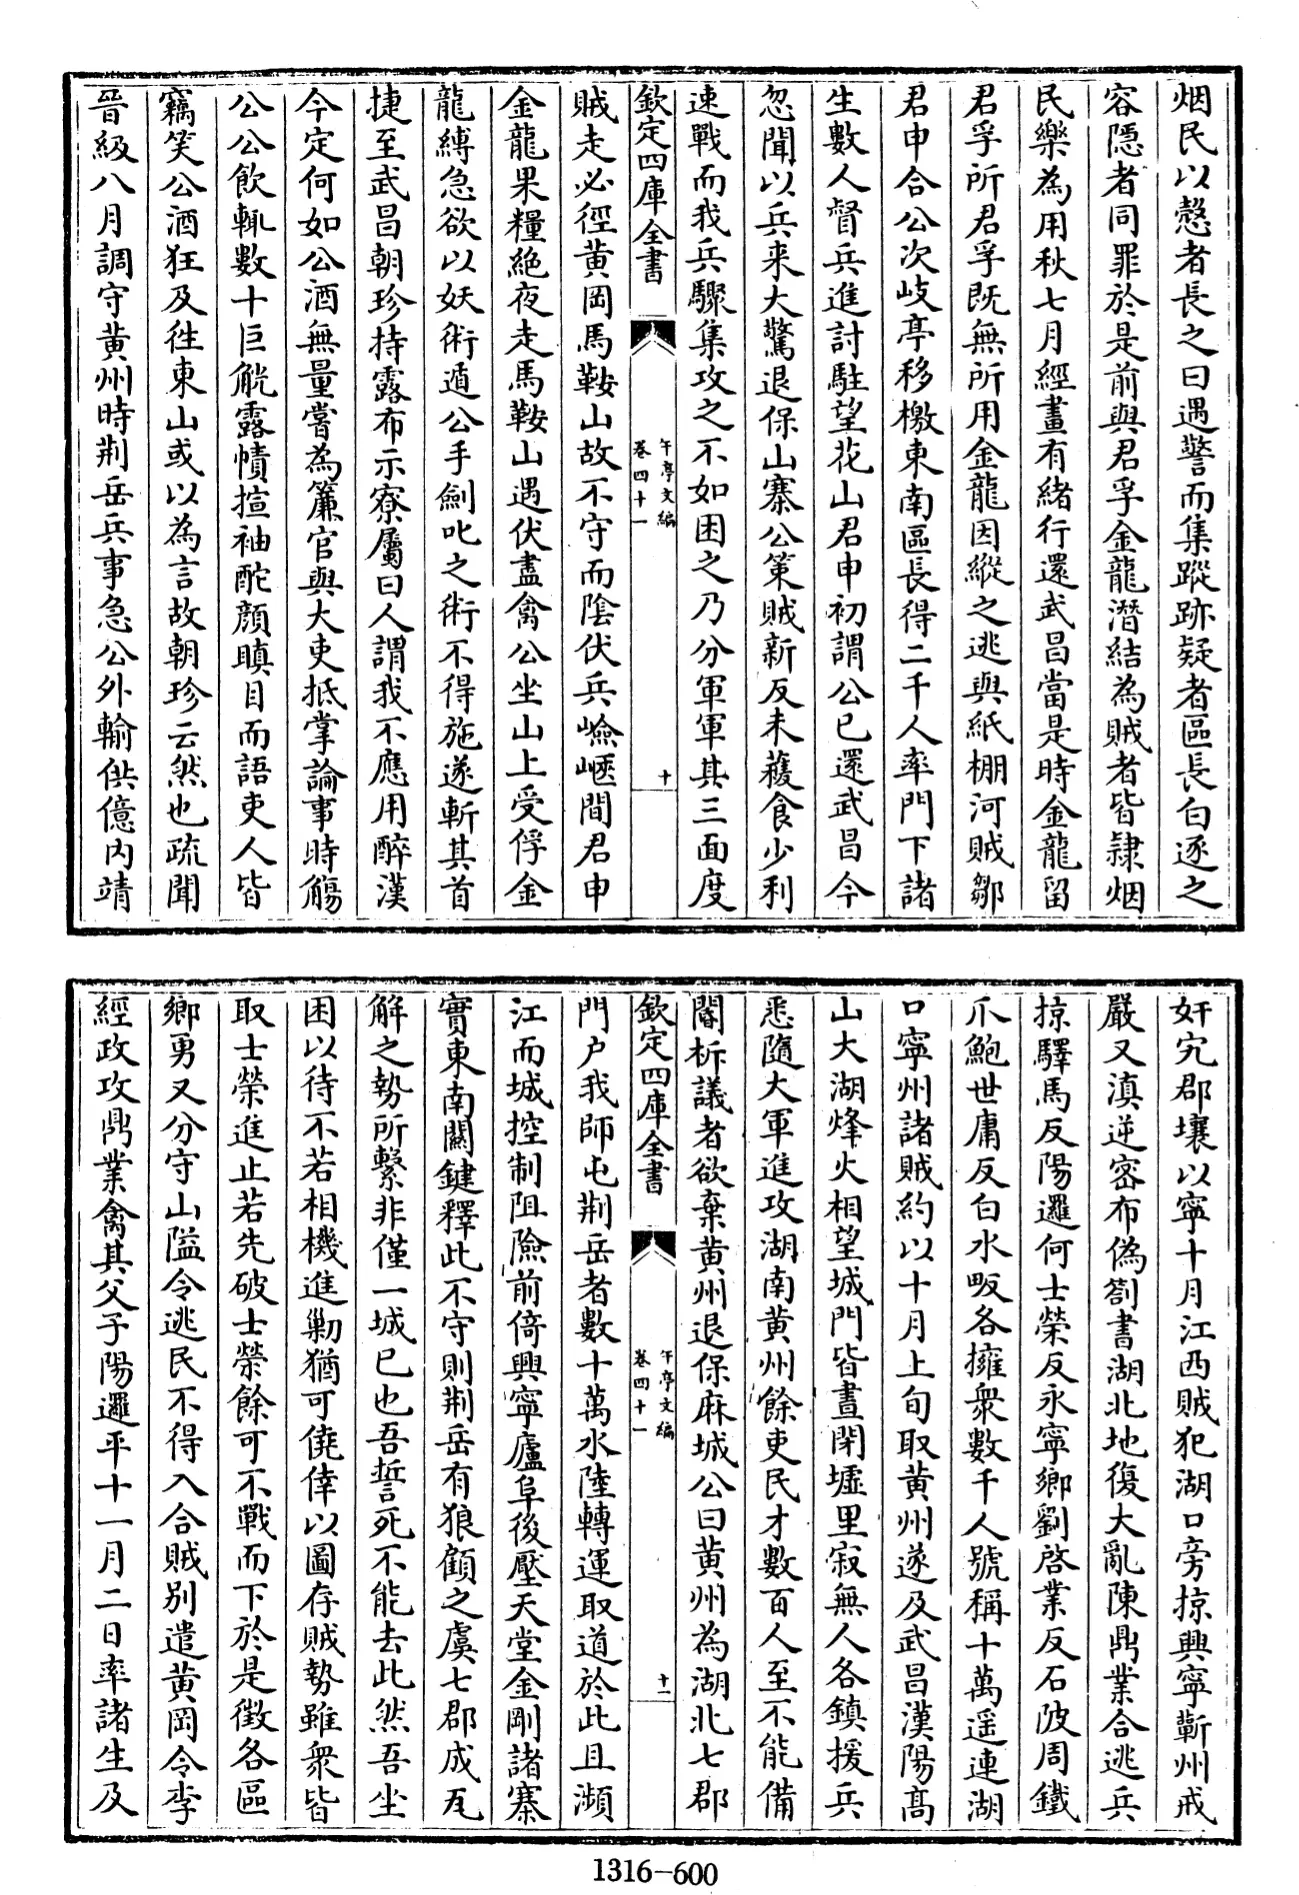 烟民以慤者長之曰遇警而集蹤跡疑者區長白逐之
容隱者同罪於是前與君孚金龍潛結為賊者皆隸烟
民樂為用秋七月經畫有緒行還武昌當是時金龍留
君孚所君孚既無所用金龍因縱之逃與紙棚河賊鄒
君申合公次岐亭移檄東南區長得二千人率門下諸
生數人督兵進討駐望花山君申初謂公已還武昌今
忽聞以兵來大驚退保山寨公策賊新反未蓛食少利
速戰而我兵驟集攻之不如困之乃分軍軍其三面度
欽定四庫全書
午亭文編
卷四十一
十
賊走必徑黃岡馬鞍山故不守而陰伏兵嶮嶇間君申
金龍果糧絶夜走馬鞍山遇伏盡禽公坐山上受俘金
龍縛急欲以妖術遁公手劍叱之術不得施遂斬其首
捷至武昌朝珍持露布示寮屬曰人謂我不應用醉漢
今定何如公酒無量嘗為簾官與大吏抵掌論事時觴
公公飲輒數十巨觥露幘揎袖酡顏瞋目而語吏人皆
竊笑公酒狂及徃東山或以為言故朝珍云然也疏聞
晉級八月調守黃州時荆岳兵事急公外輸供億内靖
奸宄郡壤以寧十月江西賊犯湖口旁掠興寧蘄州戒
嚴又滇逆密布偽劄書湖北地復大亂陳鼎業合逃兵
掠驛馬反陽邏何士榮反永寧鄉劉啓業反石陂周鐵
爪鮑世庸反白水畈各擁衆數千人號稱十萬遥連湖
口寧州諸賊約以十月上旬取黃州遂及武昌漢陽髙
山大湖烽火相望城門皆晝閉墟里寂無人各鎮援兵
悉隨大軍進攻湖南黃州餘吏民才數百人至不能備
闉柝議者欲棄黃州退保麻城公曰黃州為湖北七郡
欽定四庫全書
午亭文編
卷四十一
十一
門户我師屯荆岳者數十萬水陸轉運取道於此且瀕
江而城控制阻險前倚興寧廬阜後壓天堂金剛諸寨
實東南關鍵釋此不守則荆岳有狼顧之虞七郡成瓦
解之勢所繫非僅一城已也吾誓死不能去此然吾坐
困以待不若相機進勦猶可僥倖以圖存賊勢雖衆皆
取士榮進止若先破士榮餘可不戰而下於是徵各區
鄉勇又分守山隘令逃民不得入合賊别遣黃岡令李
經政攻鼎業禽其父子陽邏平十一月二日率諸生及
1316-600